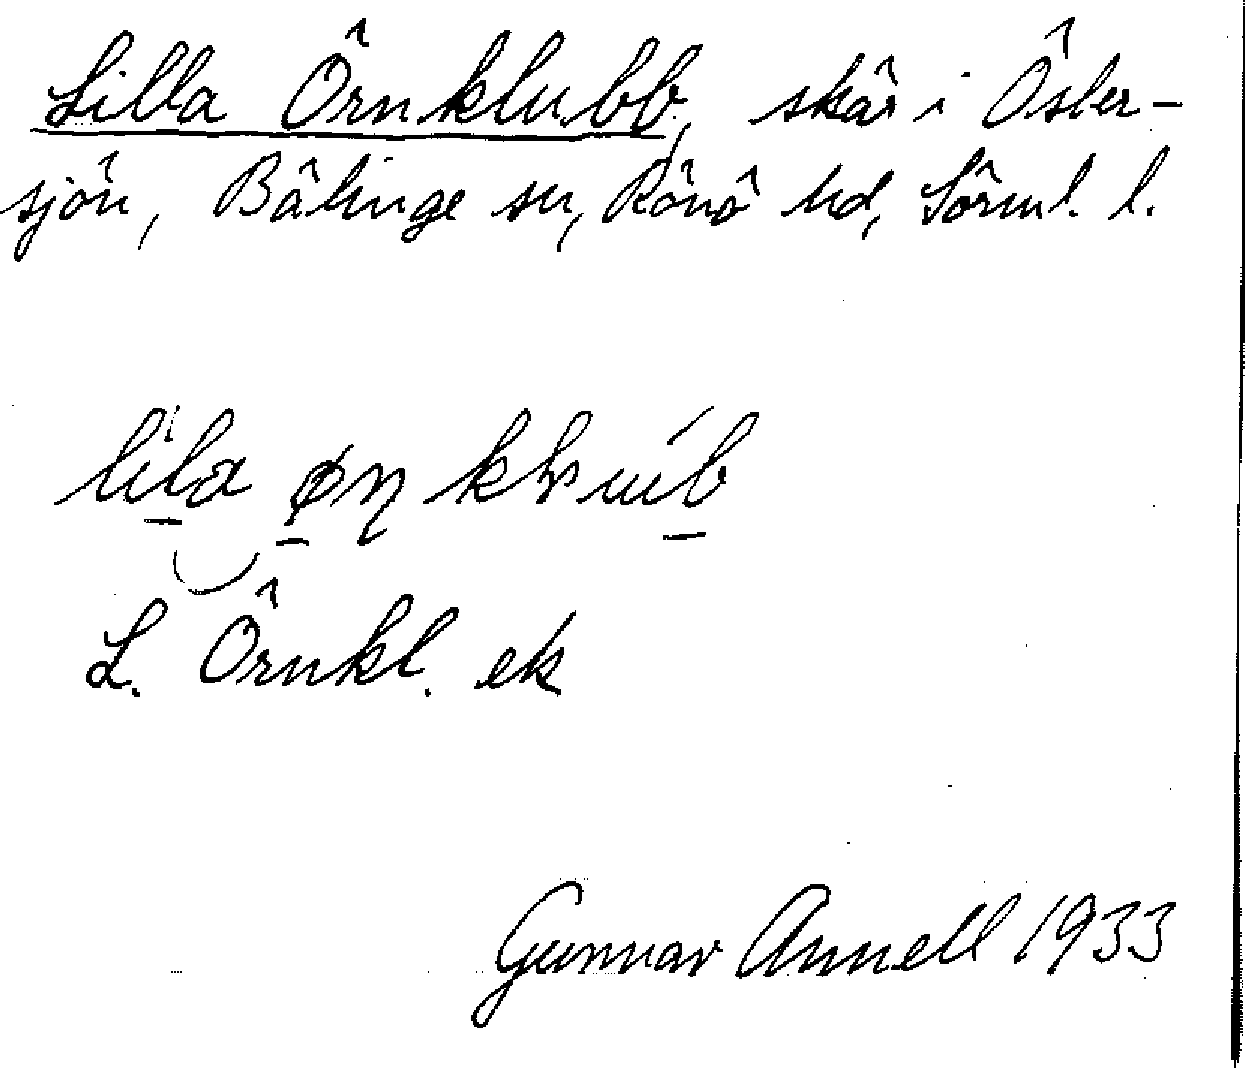 Lilla Örnklubb, skär i Öster-
sjön, Bälinge sn, Rönö hd, Sörml. l.
L. Örnkl. ek
Gunnar Annell 1933